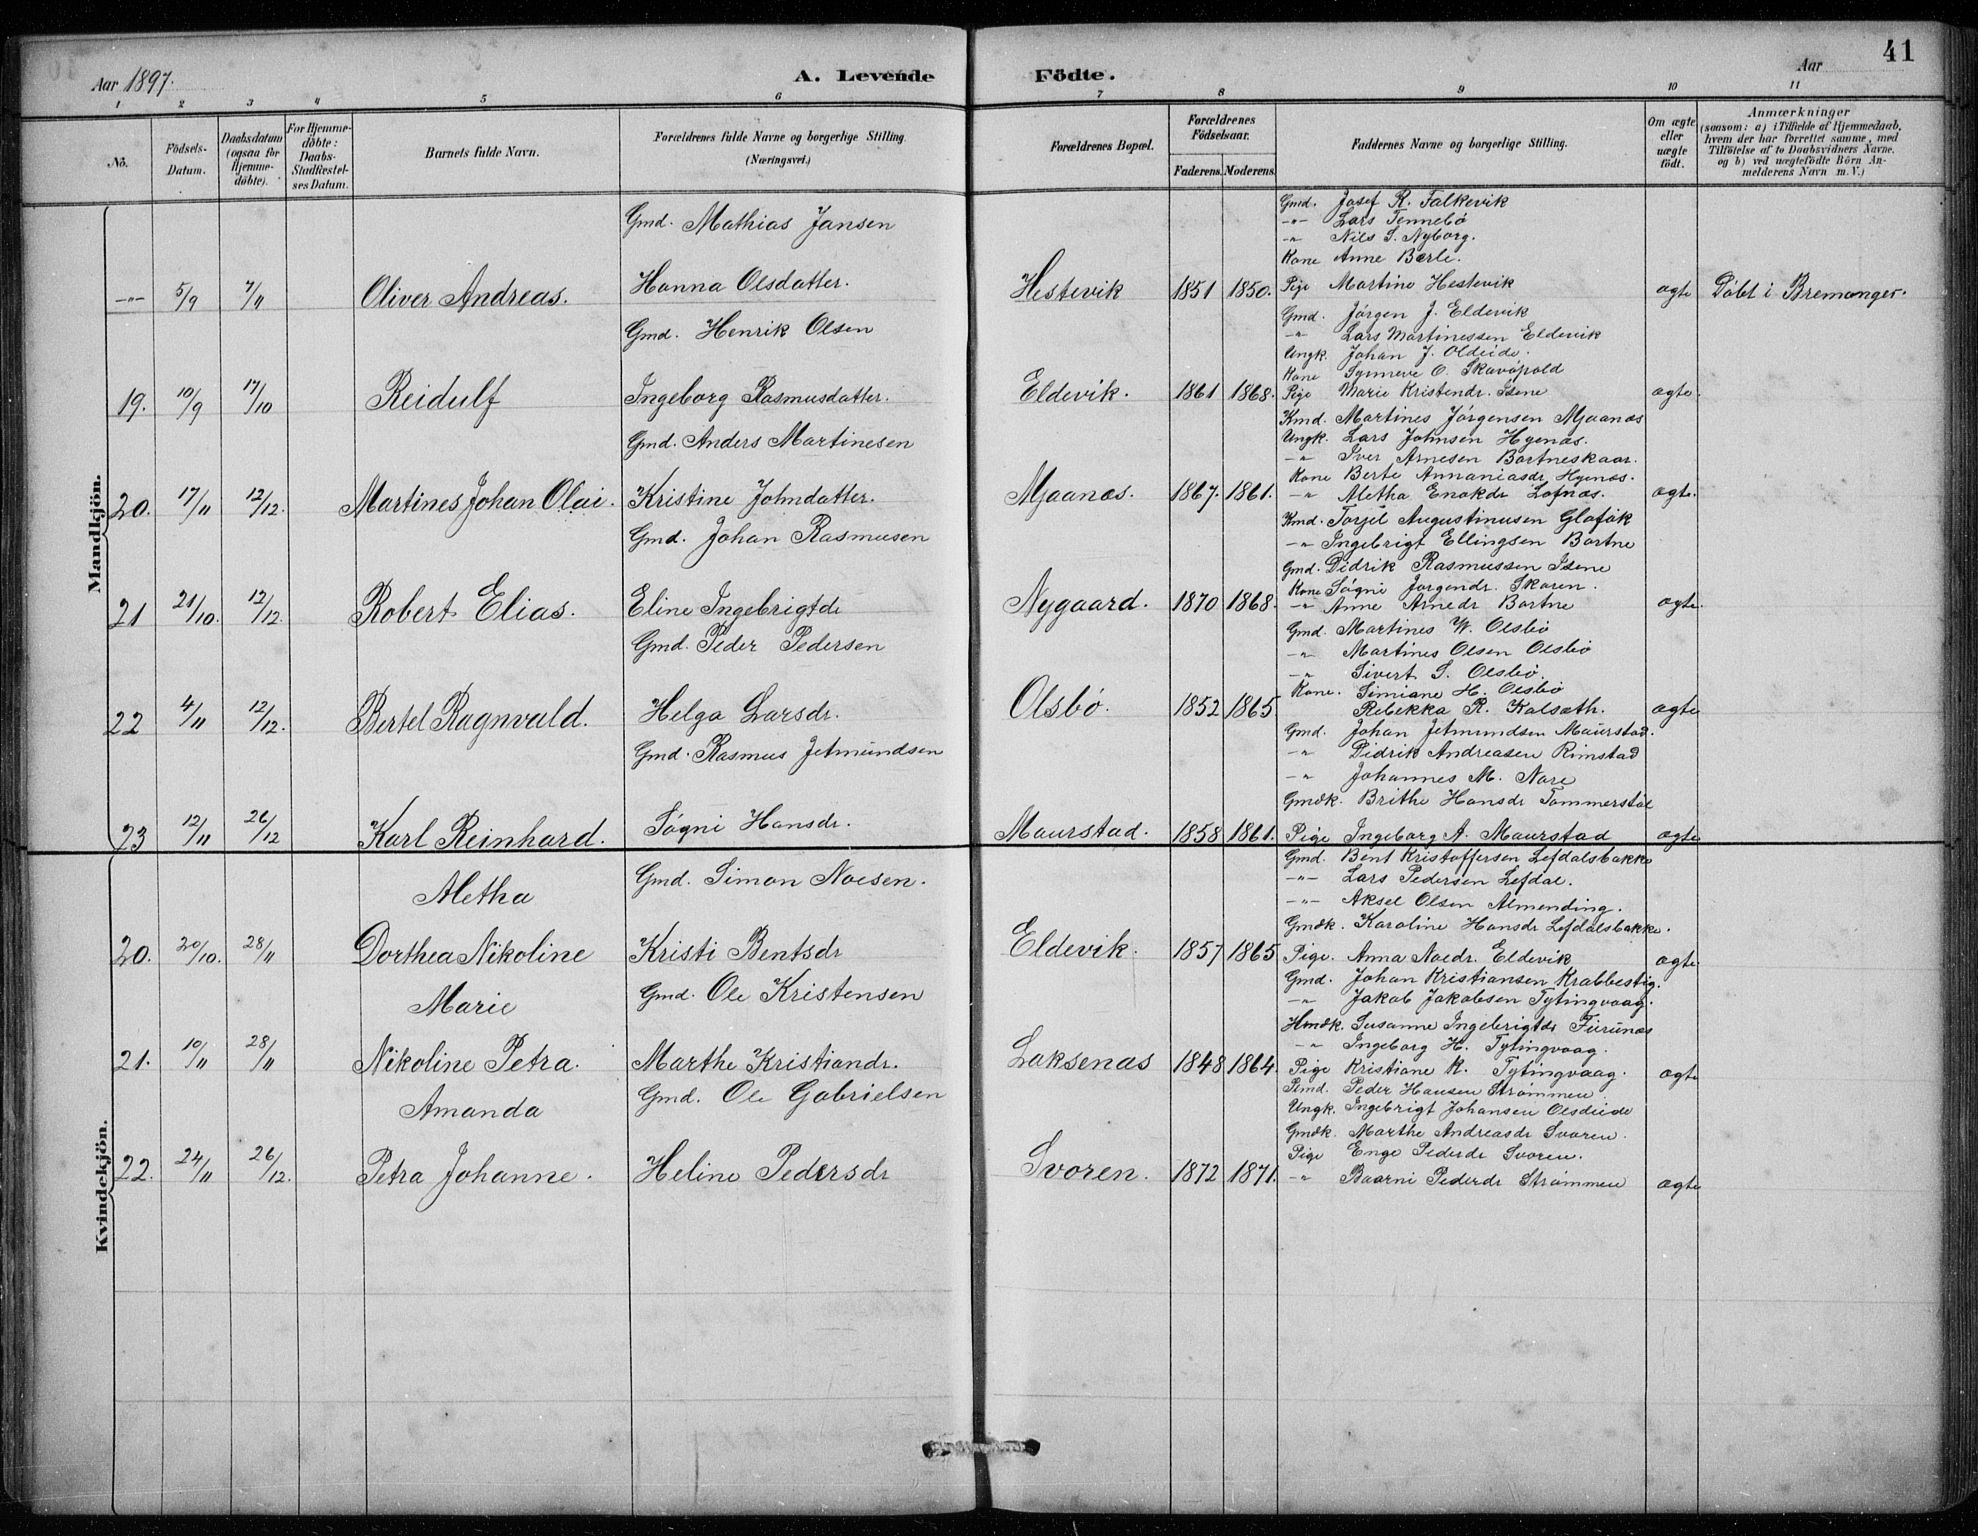 41
Aar 1897.
A. Levende
Födte.
Aar
1 2 3 4 5 6 7 8 9 10 11
No.
Födsels-Datum.
Daabsdatum (ogsaa for Hjemme-döbte).
For Hjemme-döbte: Daabs-Stadfæstel-ses Datum.
Barnets fulde Navn.
Forældrenes fulde Navne og borgerlige Stilling. (Næringsvei.)
Forældrenes Bopæl.
Forældrenes Födselsaar.
Faderens. Moderens.
Faddernes Navne og borgerlige Stilling.
Om ægte eller uægte födt.
Anmærkninger (saasom: a) i Tilfælde af Hjemmedaab, hvem der har forrettet samme, med Tilföielse af to Daabsvidners Navne. og b) ved uægtefödte Börn An-melderens Navn m. V.)
Mandkjön.
Gmd. Mathias Jansen
Gmd. Josef R. Falkevik
-"- Lars Tennebö
-"- Nils S. Nyborg.
Kone Anne Berle.
-"- 5/9 7/11 Oliver Andreas. Hanna Olsdatter. Hestevik 1851 1850. Pige Martine Hestevik ægte Döbt i Bremanger.
Gmd. Henrik Olsen
Gmd. Jörgen J. Eldevik
-"- Lars Martinessen Eldevik
Ungk. Johan J. Oldeide.
Kone Synneve O. Skavöpold
19. 10/9 17/10 Reidulf Ingeborg Rasmusdatter. Eldevik. 1861 1868. Pige Marie Kristendr. Isene ægte.
Gmd. Anders Martinesen
Kmd. Martines Jörgensen Mjaanæs
Ungk. Lars Johnsen Hyenæs.
-"- Iver Arnesen Bortneskaar.
Kone Berte Annaniasdr Hyenæs.
20. 17/11 12/12. Martines Johan Olai. Kristine Johndatter. Mjaanæs. 1867. 1861. -"- Aletha Enokdr Lofnæs. ægte.
Gmd. Johan Rasmusen
Kmd. Torjil Augustinusen Glofök
-"- Ingebrigt Ellingsen Bortne
Gmd. Didrik Rasmussen Isene
Kone Sögni Jorgendr. Skaren.
21 21/10. 12/12. Robert Elias. Eline Ingebrigtdr Nygaard. 1870 1868. -"- Anne Arnedr Bortne ægte.
Gmd. Peder Pedersen
Gmd. Martines W. Olsbö
-"- Martines Olsen Olsbö
-"- Sivert S. Olsbö.
Kone. Simiane H. Olsbö
22 4/11 12/12. Bertel Ragnvald. Helga Larsdr. Olsbö. 1852 1865 Rebekka R. Kalsæth. ægte
Gmd. Rasmus Jetmundsen
Gmd. Johan Jetmundsen Maurstad.
-"- Didrik Andreasen Rimstad
-"- Johannes M. Nore
Gmdk. Brithe Hansdr Tommerstöl
23 12/11 26/12 Karl Reinhard. Sögni Hansdr. Maurstad. 1858 1861. Pige Ingeborg A. Maurstad ægte
Kvindekjön.
Gmd. Simon Noesen.
Gmd. Bent Kristoffersen Lefdalsbakke
-"- Lars Pedersen Lefdal.
-"- Aksel Olsen Almending.
Gmdk. Karoline Hansdr Lefdalsbakke.
Aletha
20. 20/10. 28/11 Dorthea Nikoline Kristi Bentsdr Eldevik. 1857 1865 Pige. Anna Noedr. Eldevik ægte.
Marie
Gmd. Ole Kristensen
Gmd. Johan Kristiansen Krabbestig.
-"- Jakob Jakobsen Tytingvaag.
Hmdk. Susanne Ingebrigtdr Furunæs
-"- Ingeborg H. Tytingvaag.
21. 10/11 28/11 Nikoline Petra. Marthe Kristiandr. Laksenæs 1848 1864. Pige Kristiane K. Tytingvaag. ægte
Amanda
Gmd. Ole Gabrielsen
Gmd. Peder Hansen Strömmen
Ungk. Ingebrigt Johansen Olsdeide
Gmdk. Marthe Andreasdr Svoren.
Pige Enge Pederdr Svoren.
22. 24/11 26/12. Petra Johanne. Heline Pedersdr Svoren. 1872 1871. -"- Baarni Pederdr Strömmen ægte